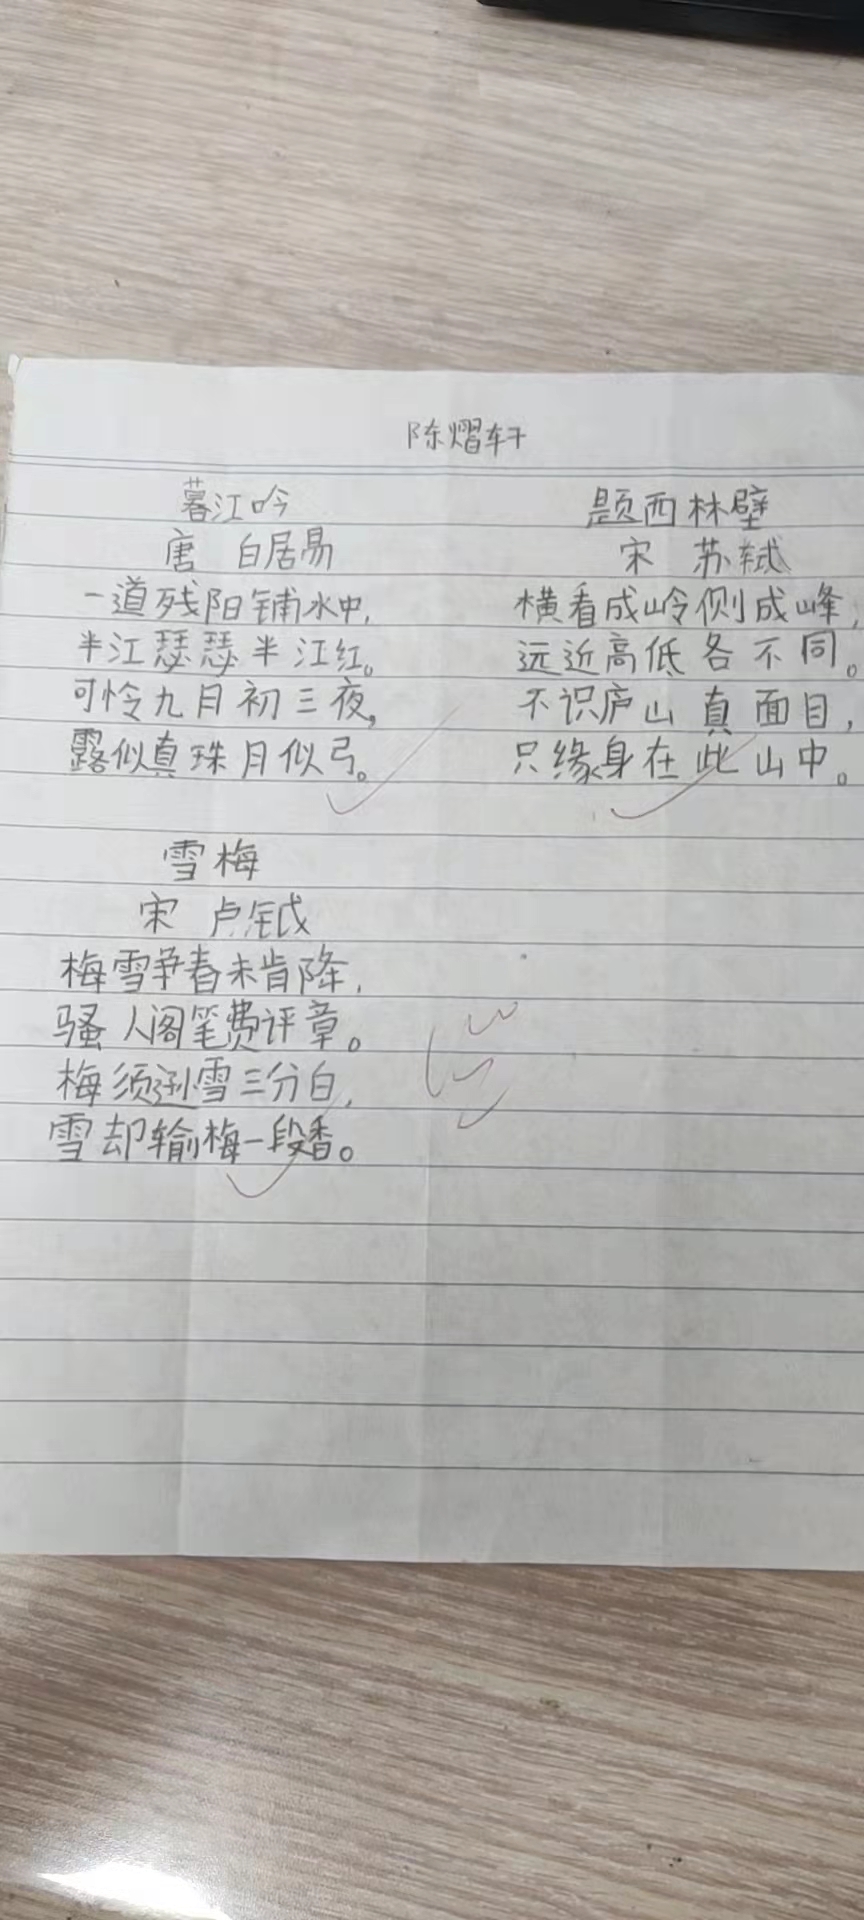 陈熠轩
暮江吟
唐 白居易
一道残阳铺水中,
半江瑟瑟半江红。
可怜九月初三夜,
露似真珠月似弓。
题西林壁
宋 苏轼
横看成岭侧成峰,
远近高低各不同。
不识庐山真面目,
只缘身在此山中。
雪梅
宋 卢钺
梅雪争春未肯降,
骚人阁笔费评章。
梅须逊雪三分白,
雪却输梅一段香。